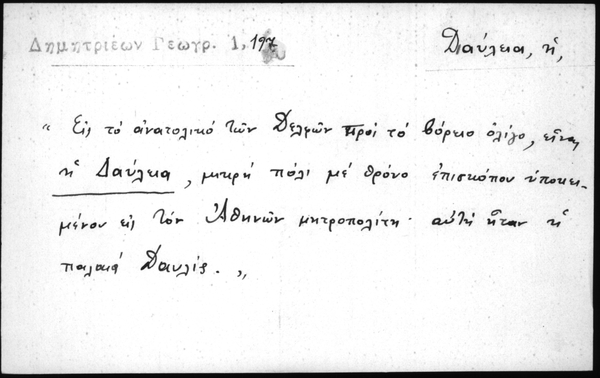 Δημητριέων Γεωγρ. 1, 197
Δαύλεια, ἡ,
" Εἰς τό ἀνατολικό τῶν Δελφῶν πρός τό βόρειο ὀλίγο, εἶναι
ἡ Δαύλεια, μικρή πόλι μέ θρόνο ἐπισκόπου ὑποκει-
μένου εἰς τόν Ἀθηνῶν μητροπολίτη· αὐτή ἦταν ἡ
παλαιά Δαυλίς. "